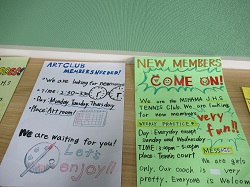 ART CLUB
MEMBERS NEEDED!
We are looking for new
TIME: 2:30~
Day: Monday, Tuesday, Thursday
Place: Art room!
We are waiting for you!
Let's
enjoy!!
NEW MEMBERS
COME ON!
We are the MIHAMA J.H.S
TENNIS Club. We are looking
for new members
very
fun!!
WEEKLY PRACTICE
Day: Everyday except
Tuesday and Wednesday
TIME:
Place: Tennis court
MESSAGE
We are girls
only. Our coach is very
pretty. Everyone is Welcome